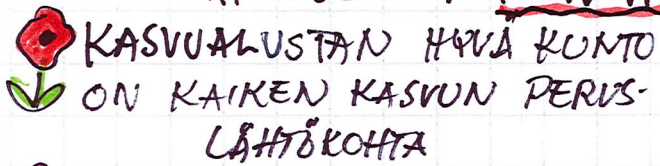 KASVUALUSTAN HYVÄ KUNTO
ON KAIKEN KASVUN PERUS-
LÄHTÖKOHTA